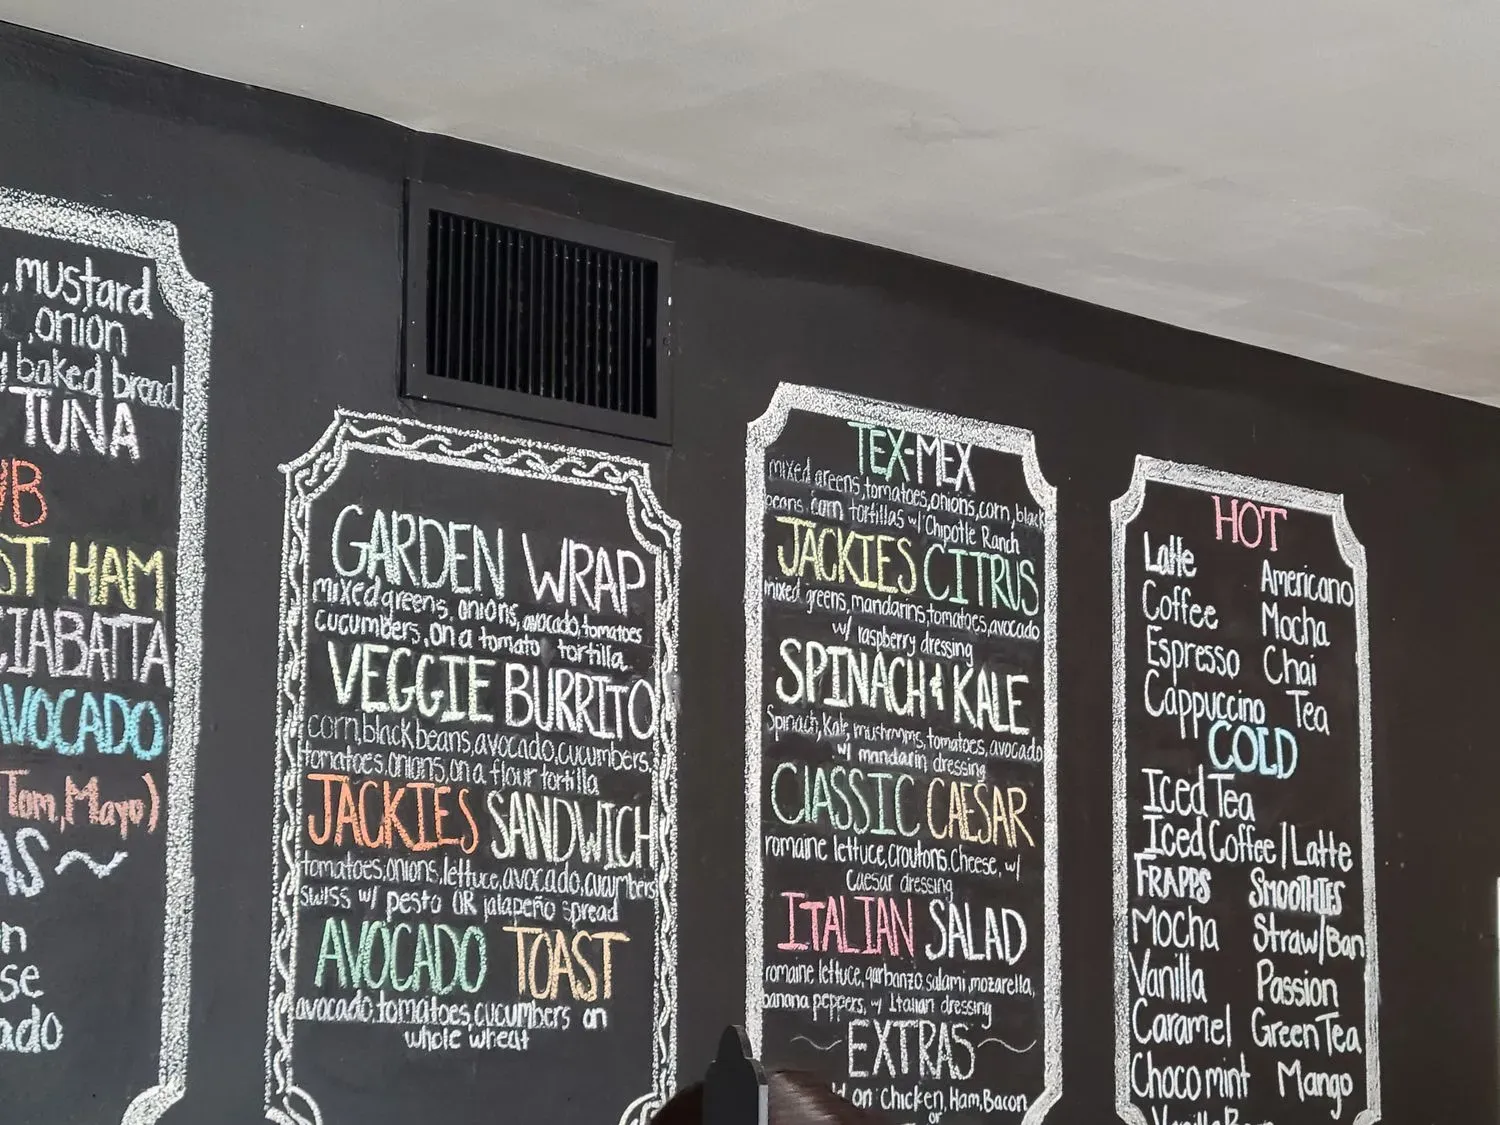 , mustard
, onion
baked bread
TUNA
HAM
CIABATTA
AVOCADO
Tom, Mayo)
GARDEN WRAP
mixed greens, onions, avocado, tomatoes
cucumbers, on a tomato tortilla.
VEGGIE BURRITO
corn, black beans, avocado, cucumbers,
tomatoes, onions, on a flour tortilla
JACKIES SANDWICH
tomatoes, onions, lettuce, avocado, cucumbers
swiss w/ pesto OR jalapeño spread
AVOCADO TOAST
avocado, tomatoes, cucumbers on
whole wheat
TEX-MEX
mixed greens, tomatoes, onions, corn, black
beans, corn tortillas w/ Chipotle Ranch
JACKIES CITRUS
mixed greens, mandarins, tomatoes, avocado
w/ raspberry dressing
SPINACH & KALE
Spinach, Kale, mushrooms, tomatoes, avocado
w/ mandarin dressing
CLASSIC CAESAR
romaine lettuce, croutons, cheese, w/
Caesar dressing
ITALIAN SALAD
romaine lettuce, garbanzo, salami, mozarella,
banana peppers, w/ Italian dressing
~ EXTRAS ~
on Chicken, Ham, Bacon
or
HOT
Latte Americano
Coffee Mocha
Espresso Chai
Cappuccino Tea
COLD
Iced Tea
Iced Coffee / Latte
FRAPPS SMOOTHIES
Mocha Straw/Ban
Vanilla Passion
Caramel Green Tea
Choco mint Mango